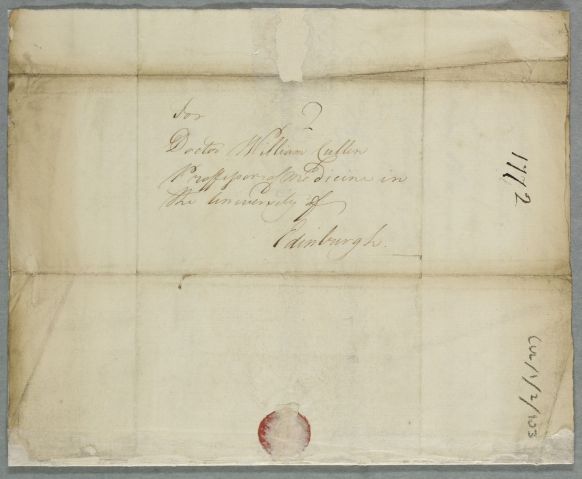 For
2
Doctor William Cullen
Proffessor of Medicine in
the University of
Edinburgh.
1772
CUL/1/2/103